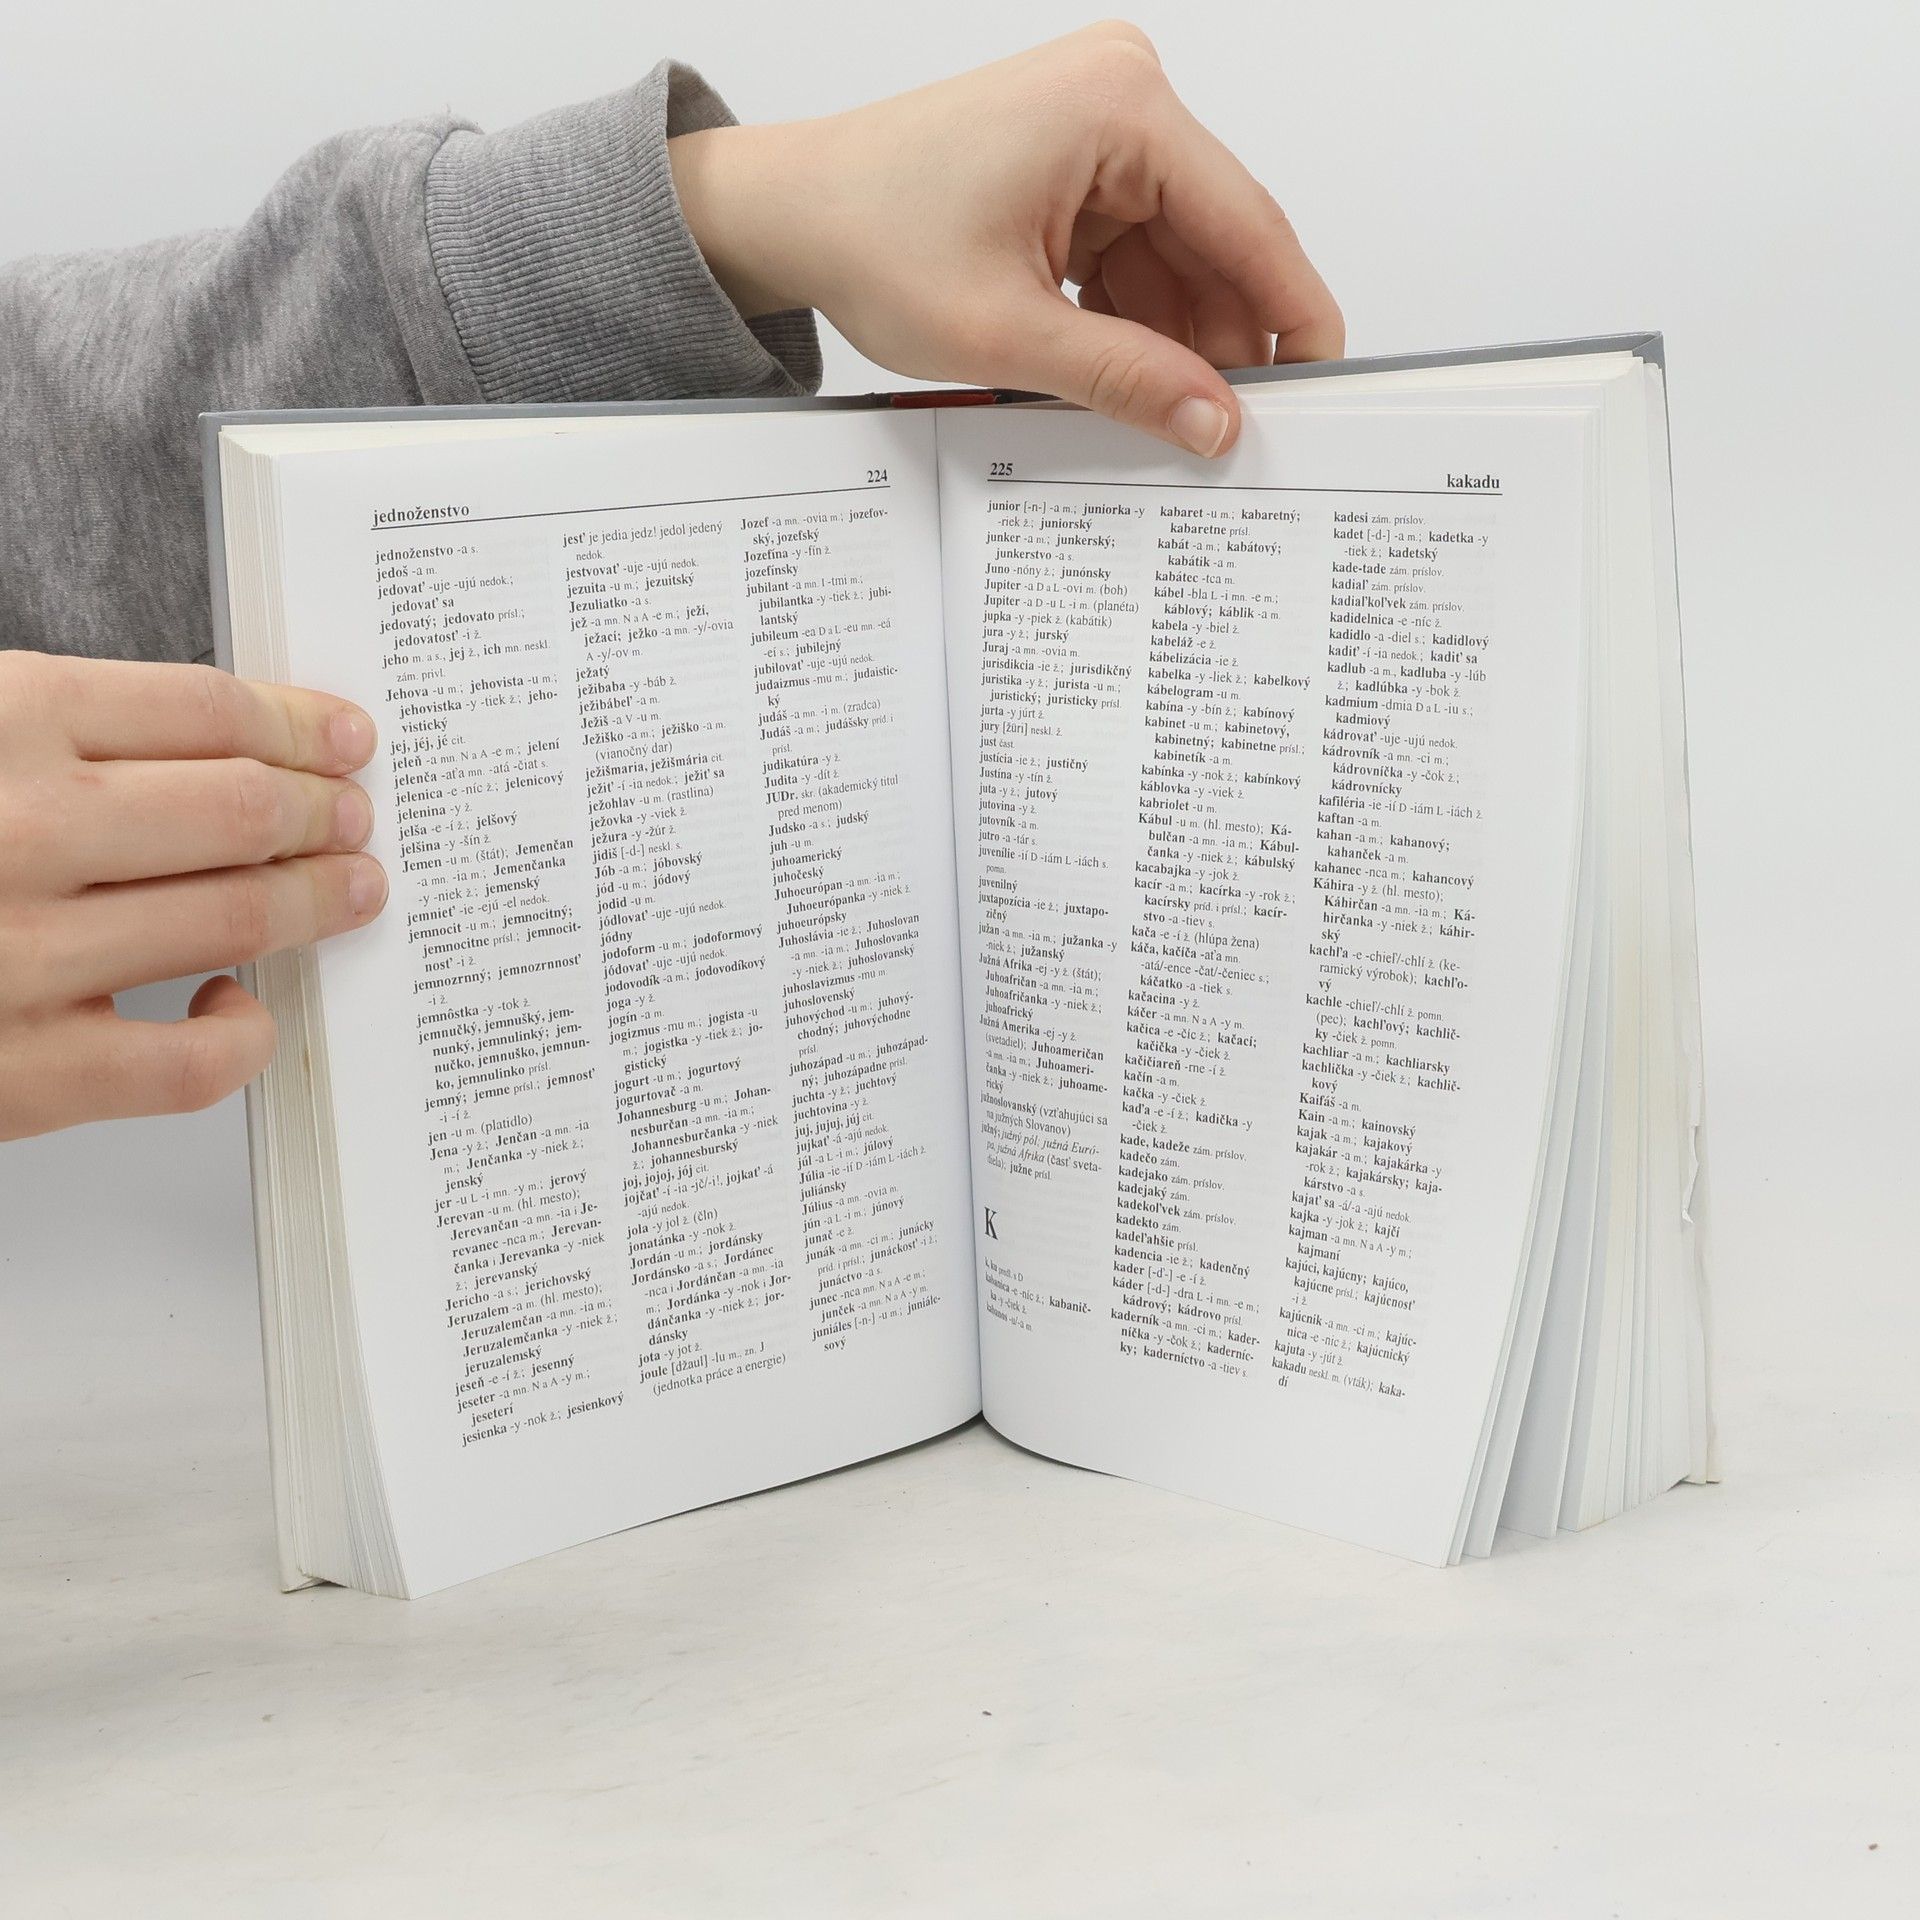 224
jednoženstvo
jednoženstvo -a s.
jedoš -a m.
jedovať -uje -ujú nedok.;
jedovať sa
jedovatý; jedovato prísl.;
jedovatosť -i ž.
jeho m. a s., jej ž., ich mn. neskl.
zám. privl.
Jehova -u m.; jehovista -u m.;
jehovistka -y -tiek ž.; jeho-
vistický
jej, jéj, jé cit.
jeleň -a mn. N a A -e m.; jelení
jelenča -aťa mn. -atá -čiat s.
jelenica -e -níc ž.; jelenicový
jelenina -y ž.
jelša -e -í ž.; jelšový
jelšina -y -šín ž.
Jemen -u m. (štát); Jemenčan
-a mn. -ia m.; Jemenčanka
-y -niek ž.; jemenský
jemnieť -ie -ejú -el nedok.
jemnocit -u m.; jemnocitný;
jemnocitne prísl.; jemnocit-
nosť -i ž.
jemnozrnný; jemnozrnnosť
-i ž.
jemnôstka -y -tok ž.
jemnučký, jemnušký, jem-
nunký, jemnulinký; jem-
nučko, jemnuško, jemnun-
ko, jemnulinko prísl.
jemný; jemne prísl.; jemnosť
-i -í ž.
jen -u m. (platidlo)
Jena -y ž.; Jenčan -a mn. -ia
m.; Jenčanka -y -niek ž.;
jenský
jer -u L -i mn. -y m.; jerový
Jerevan -u m. (hl. mesto);
Jerevančan -a mn. -ia i Je-
revanec -nca m.; Jerevan-
čanka i Jerevanka -y -niek
ž.; jerevanský
Jericho -a s.; jerichovský
Jeruzalem -a m. (hl. mesto);
Jeruzalemčan -a mn. -ia m.;
Jeruzalemčanka -y -niek ž.;
jeruzalemský
jeseň -e -í ž.; jesenný
jeseter -a mn. N a A -y m.;
jeseterí
jesienka -y -nok ž.; jesienkový
jesť je jedia jedz! jedol jedený
nedok.
jestvovať -uje -ujú nedok.
jezuita -u m.; jezuitský
Jezuliatko -a s.
jež -a mn. N a A -e m.; ježí,
ježaci; ježko -a mn. -y/-ovia
A -y/-ov m.
ježatý
ježibaba -y -báb ž.
ježibábeľ -a m.
Ježiš -a V -u m.
Ježiško -a m.; ježiško -a m.
(vianočný dar)
ježišmaria, ježišmária cit.
ježiť -í -ia nedok.; ježiť sa
ježohlav -u m. (rastlina)
ježovka -y -viek ž.
ježura -y -žúr ž.
jidiš [-d-] neskl. s.
Jób -a m.; jóbovský
jód -u m.; jódový
jodid -u m.
jódlovať -uje -ujú nedok.
jódny
jodoform -u m.; jodoformový
jódovať -uje -ujú nedok.
jodovodík -a m.; jodovodíkový
joga -y ž.
jogín -a m.
jogizmus -mu m.; jogista -u
m.; jogistka -y -tiek ž.; jo-
gistický
jogurt -u m.; jogurtový
jogurtovač -a m.
Johannesburg -u m.; Johan-
nesburčan -a mn. -ia m.;
Johannesburčanka -y -niek
ž.; johannesburský
joj, jojoj, jój cit.
jojčať -í -ia -jč/-i!, jojkať -á
-ajú nedok.
jola -y jol ž. (čln)
jonatánka -y -nok ž.
Jordán -u m.; jordánsky
Jordánsko -a s.; Jordánec
-nca i Jordánčan -a mn. -ia
m.; Jordánka -y -nok i Jor-
dánčanka -y -niek ž.; jor-
dánsky
jota -y jot ž.
joule [džaul] -lu m., zn. J
(jednotka práce a energie)
Jozef -a mn. -ovia m.; jozefov-
ský, jozefský
Jozefína -y -fín ž.
jozefínsky
jubilant -a mn. I -tmi m.;
jubilantka -y -tiek ž.; jubi-
lantský
jubileum -ea D a L -eu mn. -eá
-eí s.; jubilejný
jubilovať -uje -ujú nedok.
judaizmus -mu m.; judaistic-
ký
judáš -a mn. -i m. (zradca)
Judáš -a m.; judášsky príd. i
prísl.
judikatúra -y ž.
Judita -y -dít ž.
JUDr. skr. (akademický titul
pred menom)
Judsko -a s.; judský
juh -u m.
juhoamerický
juhočeský
Juhoeurópan -a mn. -ia m.;
Juhoeurópanka -y -niek ž.
juhoeurópsky
Juhoslávia -ie ž.; Juhoslovan
-a mn. -ia m.; Juhoslovanka
-y -niek ž.; juhoslovanský
juhoslavizmus -mu m
juhoslovenský
juhovýchod -u m.; juhový-
chodný; juhovýchodne
prísl.
juhozápad -u m.; juhozápad-
ný; juhozápadne prísl.
juchta -y ž.; juchtový
juchtovina -y ž.
juj, jujuj, júj cit.
jujkať -á -ajú nedok.
júl -a L -i m.; júlový
Júlia -ie -ií D -iám L -iách ž.
juliánsky
Július -a mn. -ovia m.
jún -a L -i m.; júnový
junač -e ž.
junák -a mn. -ci m.; junácky
príd. i prísl.; junáckosť -i ž.;
junáctvo -a s.
junec -nca mn. N a A -e m.;
junček -a mn. N a A -y m.
juniáles [-n-] -u m.; juniále-
sový
225
kakadu
junior [-n-] -a m.; juniorka -y
-riek ž.; juniorský
junker -a m.; junkerský;
junkerstvo -a s.
Juno -nóny ž.; junónsky
Jupiter -a D a L -ovi m. (boh)
Jupiter -a D -u L -i m. (planéta)
jupka -y -piek ž. (kabátik)
jura -y ž.; jurský
Juraj -a mn. -ovia m.
jurisdikcia -ie ž.; jurisdikčný
juristika -y ž.; jurista -u m.;
juristický; juristicky prísl.
jurta -y júrt ž.
jury [žüri] neskl. ž.
just časť.
justícia -ie ž.; justičný
Justína -y -tín ž.
juta -y ž.; jutový
jutovina -y ž.
jutovník -a m.
jutro -a -tár s.
juvenílie -ií D -iám L -iách s.
pomn.
juvenilný
juxtapozícia -ie ž.; juxtapo-
zičný
južan -a mn. -ia m.; južanka -y
-niek ž.; južanský
Južná Afrika -ej -y ž. (štát);
Juhoafričan -a mn. -ia m.;
Juhoafričanka -y -niek ž.;
juhoafrický
Južná Amerika -ej -y ž.
(svetadiel); Juhoameričan
-a mn. -ia m.; Juhoameri-
čanka -y -niek ž.; juhoame-
rický
južnoslovanský (vzťahujúci sa
na južných Slovanov)
južný; južný pól, južná Euró-
pa, južná Afrika (časť sveta-
diela); južne prísl.
K
k, ku predl. s D
kabanica -e -níc ž.; kabanič-
ka -y -čiek ž.
kabanos -u/-a m.
kabaret -u m.; kabaretný;
kabaretne prísl.
kabát -a m.; kabátový;
kabátik -a m.
kabátec -tca m.
kábel -bla L -i mn. -e m.;
káblový; káblik -a m.
kabela -y -biel ž.
kabeláž -e ž.
kábelizácia -ie ž.
kabelka -y -liek ž.; kabelkový
kábelogram -u m.
kabína -y -bín ž.; kabínový
kabinet -u m.; kabinetový,
kabinetný; kabinetne prísl.;
kabinetík -a m.
kabínka -y -nok ž.; kabínkový
káblovka -y -viek ž.
kabriolet -u m.
Kábul -u m. (hl. mesto); Ká-
bulčan -a mn. -ia m.; Kábul-
čanka -y -niek ž.; kábulský
kacabajka -y -jok ž.
kacír -a m.; kacírka -y -rok ž.;
kacírsky príd. i prísl.; kacír-
stvo -a -tiev s.
kača -e -í ž. (hlúpa žena)
káča, kačíča -aťa mn.
-atá/-ence -čat/-čeniec s.;
káčatko -a -tiek s.
kačacina -y ž.
káčer -a mn. N a A -y m.
kačica -e -číc ž.; kačací;
kačička -y -čiek ž.
kačičiareň -rne -í ž.
kačín -a m.
kačka -y -čiek ž.
kaďa -e -í ž.; kadička -y
-čiek ž.
kade, kadeže zám. príslov.
kadečo zám.
kadejako zám. príslov.
kadejaký zám.
kadekoľvek zám. príslov.
kadekto zám.
kadeľahšie prísl.
kadencia -ie ž.; kadenčný
kader [-ď-] -e -í ž.
káder [-d-] -dra L -i mn. -e m.;
kádrový; kádrovo prísl.
kaderník -a mn. -ci m.; kader-
níčka -y -čok ž.; kaderníc-
ky; kaderníctvo -a -tiev s.
kadesi zám. príslov.
kadet [-d-] -a m.; kadetka -y
-tiek ž.; kadetský
kade-tade zám. príslov.
kadiaľ zám. príslov.
kadiaľkoľvek zám. príslov.
kadidelnica -e -níc ž.
kadidlo -a -diel s.; kadidlový
kadiť -í -ia nedok.; kadiť sa
kadlub -a m., kadluba -y -lúb
ž.; kadlúbka -y -bok ž.
kadmium -dmia D a L -iu s.;
kadmiový
kádrovať -uje -ujú nedok.
kádrovník -a mn. -ci m.;
kádrovníčka -y -čok ž.;
kádrovnícky
kafiléria -ie -ií D -iám L -iách ž.
kaftan -a m.
kahan -a m.; kahanový;
kahanček -a m.
kahanec -nca m.; kahancový
Káhira -y ž. (hl. mesto);
Káhirčan -a mn. -ia m.; Ká-
hirčanka -y -niek ž.; káhir-
ský
kachľa -e -chieľ/-chlí ž. (ke-
ramický výrobok); kachľo-
vý
kachle -chieľ/-chlí ž. pomn.
(pec); kachľový; kachlič-
ky -čiek ž. pomn.
kachliar -a m.; kachliarsky
kachlička -y -čiek ž.; kachlič-
kový
Kaifáš -a m.
Kain -a m.; kainovský
kajak -a m.; kajakový
kajakár -a m.; kajakárka -y
-rok ž.; kajakársky; kaja-
kárstvo -a s.
kajať sa -á/-a -ajú nedok.
kajka -y -jok ž.; kajčí
kajman -a mn. N a A -y m.;
kajmaní
kajúci, kajúcny; kajúco,
kajúcne prísl.; kajúcnosť
-i ž.
kajúcnik -a mn. -ci m.; kajúc-
nica -e -níc ž.; kajúcnický
kajuta -y -jút ž.
kakadu neskl. m. (vták); kaka-
dí